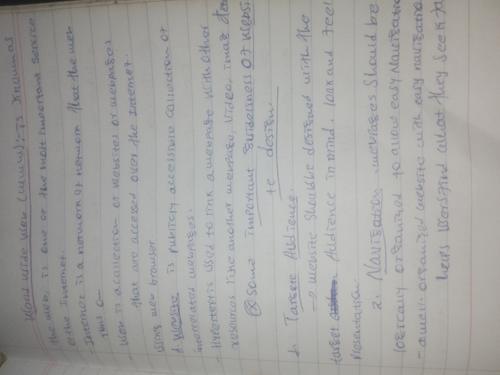 World wide web (www):- is known as
the web, is one of the most important service
of the Internet.
Internet is a network of network that the web
runs on
Web is a collection of websites or webpages
that are accessed over the Internet.
using web browser.
A website is publicly accessible collection of
interrelated webpages.
Hypertext is used to link a webpage with other
resources like another webpage, video, image
Some important guidelines of website
design
1. Target Audience
→ website should be designed with the
target Audience in mind. look and feel
Presentation
2. Navigation webpages should be
logically organized to allow easy Navigation
- a well-organized website with easy navigation
helps users find what they seek